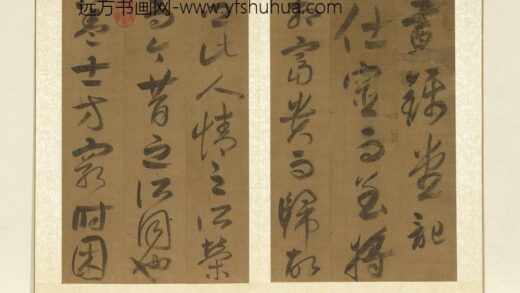 远方书画网-www.yfshuhua.com
晝錦堂記
仕宦而至將
相富貴而歸故
鄉此人情之所榮
而今昔之所同也
蓋士方窮時困